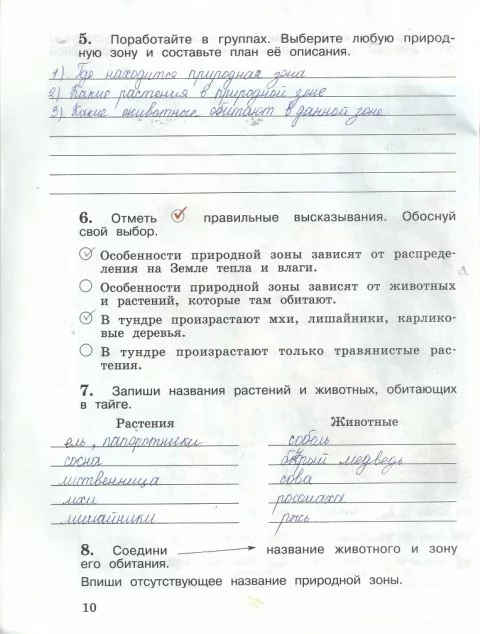 5. Поработайте в группах. Выберите любую природ-
ную зону и составьте план её описания.
1) Где находится природная зона
2) Какие растения в природной зоне
3) Какие животные обитают в данной зоне
6. Отметь правильные высказывания. Обоснуй
свой выбор.
Особенности природной зоны зависят от распреде-
ления на Земле тепла и влаги.
Особенности природной зоны зависят от животных
и растений, которые там обитают.
В тундре произрастают мхи, лишайники, карлико-
вые деревья.
В тундре произрастают только травянистые рас-
тения.
7. Запиши названия растений и животных, обитающих
в тайге.
Растения Животные
ель, папоротники соболь
сосна бурый медведь
лиственница сова
мхи росомаха
лишайники рысь
8. Соедини название животного и зону
его обитания.
Впиши отсутствующее название природной зоны.
10